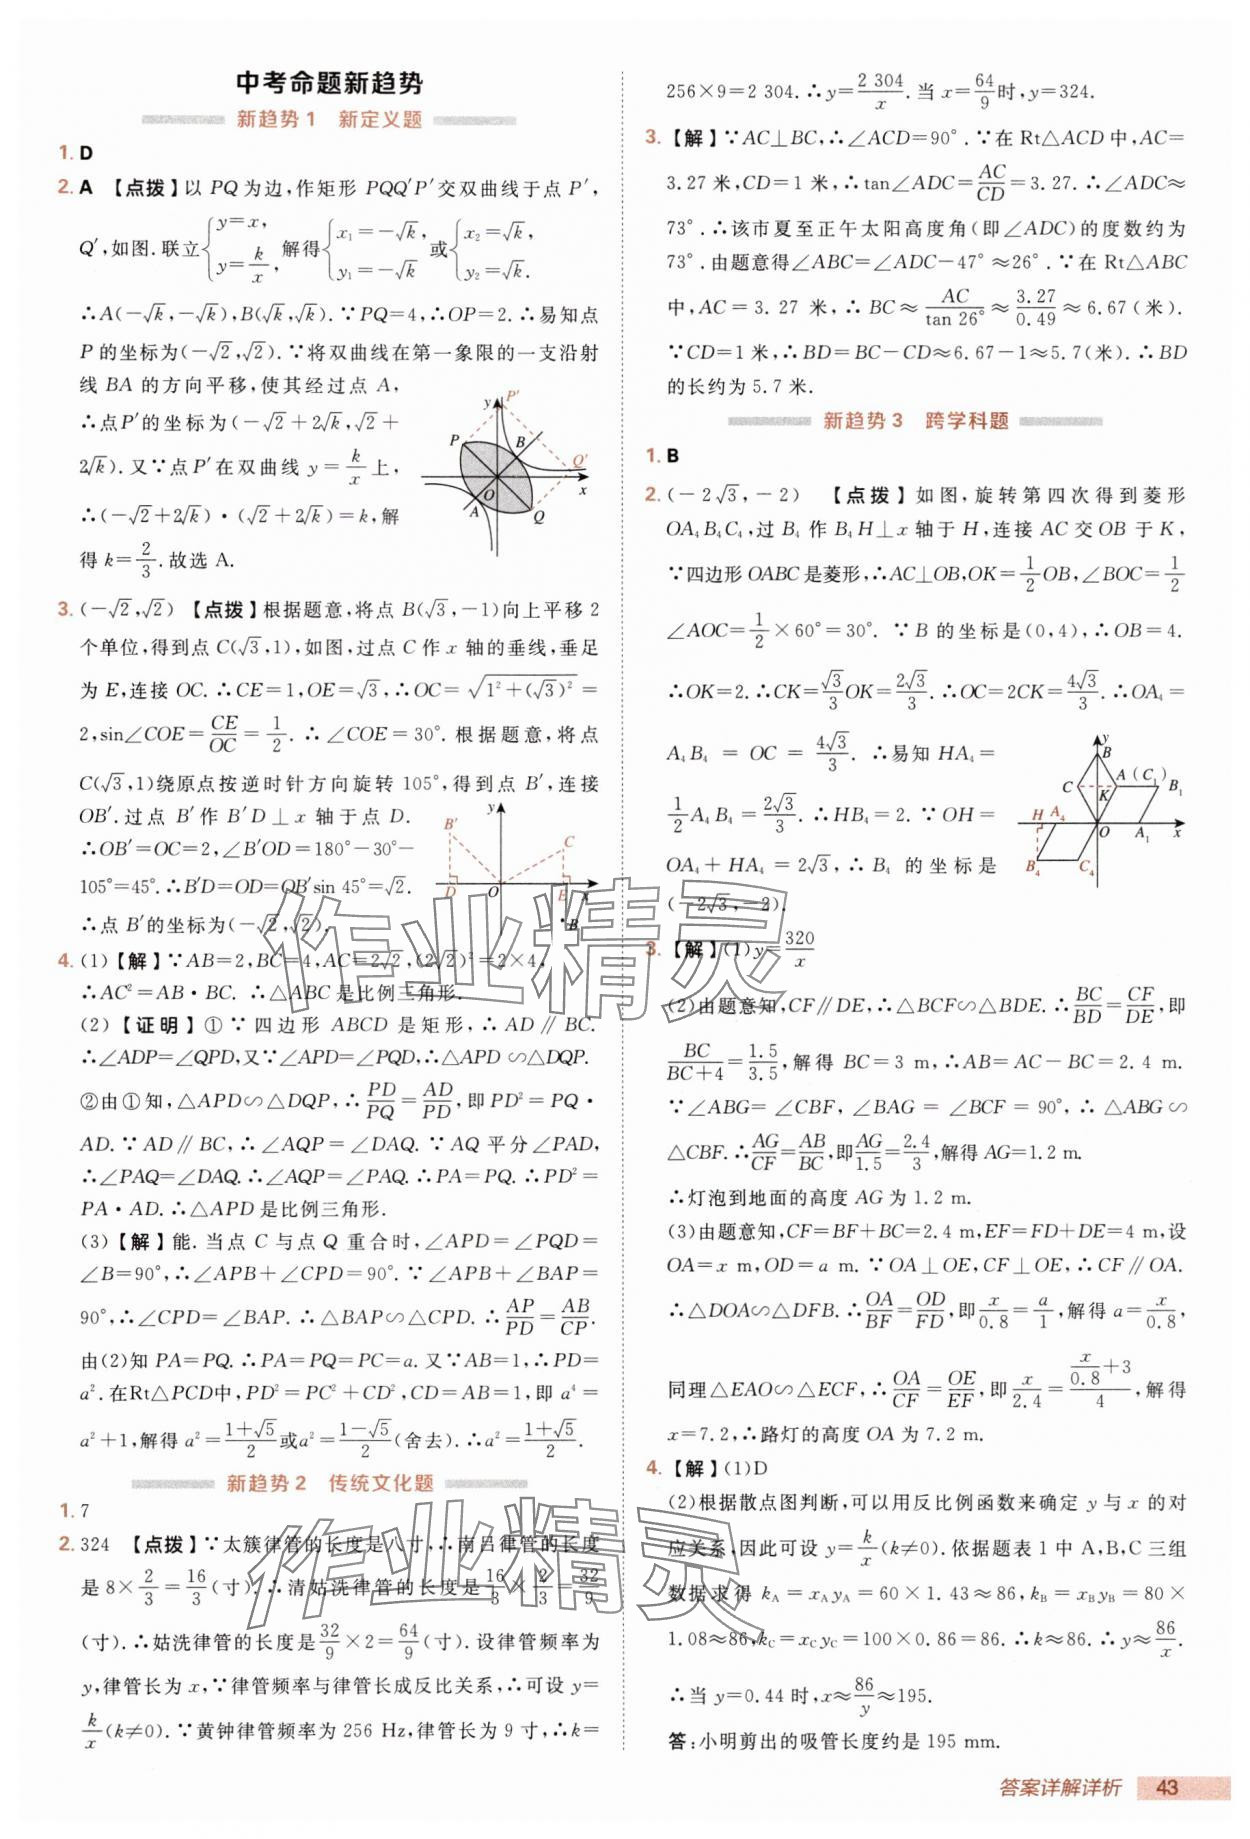 中考命题新趋势
新趋势1 新定义题
1. D
2. A 【点拨】以 PQ 为边,作矩形 PQQ′P′交双曲线于点 P′,
Q′,如图.联立{y=x, y=k/x, 解得{x₁=-√k, y₁=-√k 或{x₂=√k, y₂=√k.
∴A(-√k,-√k),B(√k,√k).∵PQ=4,∴OP=2.∴易知点
P 的坐标为(-√2,√2).∵将双曲线在第一象限的一支沿射
线 BA 的方向平移,使其经过点 A,
∴点P′的坐标为(-√2+2√k,√2+
2√k).又∵点 P′在双曲线 y=k/x上,
∴(-√2+2√k)·(√2+2√k)=k,解
得 k=2/3.故选 A.
y P′ P B Q′ O x A Q
3. (-√2,√2) 【点拨】根据题意,将点 B(√3,-1)向上平移 2
个单位,得到点 C(√3,1),如图,过点 C 作 x 轴的垂线,垂足
为 E,连接 OC.∴CE=1,OE=√3,∴OC=√(1²+(√3)²)=
2,sin∠COE=CE/OC=1/2.∴∠COE=30°.根据题意,将点
C(√3,1)绕原点按逆时针方向旋转 105°,得到点 B′,连接
OB′.过点 B′作 B′D⊥x 轴于点 D.
∴OB′=OC=2,∠B′OD=180°-30°-
105°=45°.∴B′D=OD=OB′sin 45°=√2.
∴点 B′的坐标为(-√2,√2).
y B′ C D O E x B
4. (1)【解】∵AB=2,BC=4,AC=2√2,(2√2)²=2×4,
∴AC²=AB·BC.∴△ABC是比例三角形.
(2)【证明】①∵四边形 ABCD 是矩形,∴AD∥BC.
∴∠ADP=∠QPD,又∵∠APD=∠PQD,∴△APD∽△DQP.
②由①知,△APD∽△DQP,∴PD/PQ=AD/PD,即PD²=PQ·
AD.∵AD∥BC,∴∠AQP=∠DAQ.∵AQ 平分∠PAD,
∴∠PAQ=∠DAQ.∴∠AQP=∠PAQ.∴PA=PQ.∴PD²=
PA·AD.∴△APD是比例三角形.
(3)【解】能.当点 C 与点 Q 重合时,∠APD=∠PQD=
∠B=90°,∴∠APB+∠CPD=90°.∵∠APB+∠BAP=
90°,∴∠CPD=∠BAP.∴△BAP∽△CPD.∴AP/PD=AB/CP.
由(2)知PA=PQ.∴PA=PQ=PC=a.又∵AB=1,∴PD=
a².在Rt△PCD中,PD²=PC²+CD²,CD=AB=1,即 a⁴=
a²+1,解得 a²=(1+√5)/2或a²=(1-√5)/2(舍去).∴a²=(1+√5)/2.
新趋势2 传统文化题
1. 7
2. 324 【点拨】∵太簇律管的长度是八寸,∴南吕律管的长度
是 8×2/3=16/3(寸).∴清姑洗律管的长度是16/3×2/3=32/9
(寸).∴姑洗律管的长度是32/9×2=64/9(寸).设律管频率为
y,律管长为 x,∵律管频率与律管长成反比关系,∴可设 y=
k/x(k≠0).∵黄钟律管频率为 256 Hz,律管长为 9 寸,∴k=
256×9=2 304.∴y=2 304/x.当 x=64/9时,y=324.
3. 【解】∵AC⊥BC,∴∠ACD=90°.∵在 Rt△ACD 中,AC=
3.27 米,CD=1 米,∴tan∠ADC=AC/CD=3.27.∴∠ADC≈
73°.∴该市夏至正午太阳高度角(即∠ADC)的度数约为
73°.由题意得∠ABC=∠ADC-47°≈26°.∵在 Rt△ABC
中,AC=3.27 米,∴BC≈AC/tan 26°≈3.27/0.49≈6.67(米).
∵CD=1米,∴BD=BC-CD≈6.67-1≈5.7(米).∴BD
的长约为 5.7 米.
新趋势3 跨学科题
1. B
2. (-2√3,-2) 【点拨】如图,旋转第四次得到菱形
OA₄B₄C₄,过 B₄ 作 B₄H⊥x 轴于 H,连接 AC 交 OB 于 K,
∵四边形 OABC是菱形,∴AC⊥OB,OK=1/2OB,∠BOC=1/2
∠AOC=1/2×60°=30°.∵B 的坐标是(0,4),∴OB=4.
∴OK=2.∴CK=√3/3OK=2√3/3.∴OC=2CK=4√3/3.∴OA₄=
A₄B₄=OC=4√3/3.∴易知 HA₄=
1/2A₄B₄=2√3/3.∴HB₄=2.∵OH=
OA₄+HA₄=2√3,∴B₄ 的坐标是
(-2√3,-2).
y B A(C₁) C K B₁ H A₄ O A₁ x B₄ C₄
3. 【解】(1)y=320/x
(2)由题意知,CF∥DE,∴△BCF∽△BDE.∴BC/BD=CF/DE,即
BC/(BC+4)=1.5/3.5,解得 BC=3 m,∴AB=AC-BC=2.4 m.
∵∠ABG=∠CBF,∠BAG=∠BCF=90°,∴△ABG∽
△CBF.∴AG/CF=AB/BC,即AG/1.5=2.4/3,解得 AG=1.2 m.
∴灯泡到地面的高度 AG 为 1.2 m.
(3)由题意知,CF=BF+BC=2.4 m,EF=FD+DE=4 m,设
OA=x m,OD=a m.∵OA⊥OE,CF⊥OE,∴CF∥OA.
∴△DOA∽△DFB.∴OA/BF=OD/FD,即x/0.8=a/1,解得 a=x/0.8,
同理△EAO∽△ECF,∴OA/CF=OE/EF,即x/2.4=(x/0.8+3)/4,解得
x=7.2,∴路灯的高度 OA 为 7.2 m.
4. 【解】(1)D
(2)根据散点图判断,可以用反比例函数来确定 y 与 x 的对
应关系,因此可设 y=k/x(k≠0).依据题表 1 中 A,B,C 三组
数据求得 k_A=x_A y_A=60×1.43≈86,k_B=x_B y_B=80×
1.08≈86,k_C=x_C y_C=100×0.86=86.∴k≈86.∴y≈86/x.
∴当 y=0.44 时,x≈86/y≈195.
答:小明剪出的吸管长度约是 195 mm.
答案详解详析 43
作业精灵
作业精灵